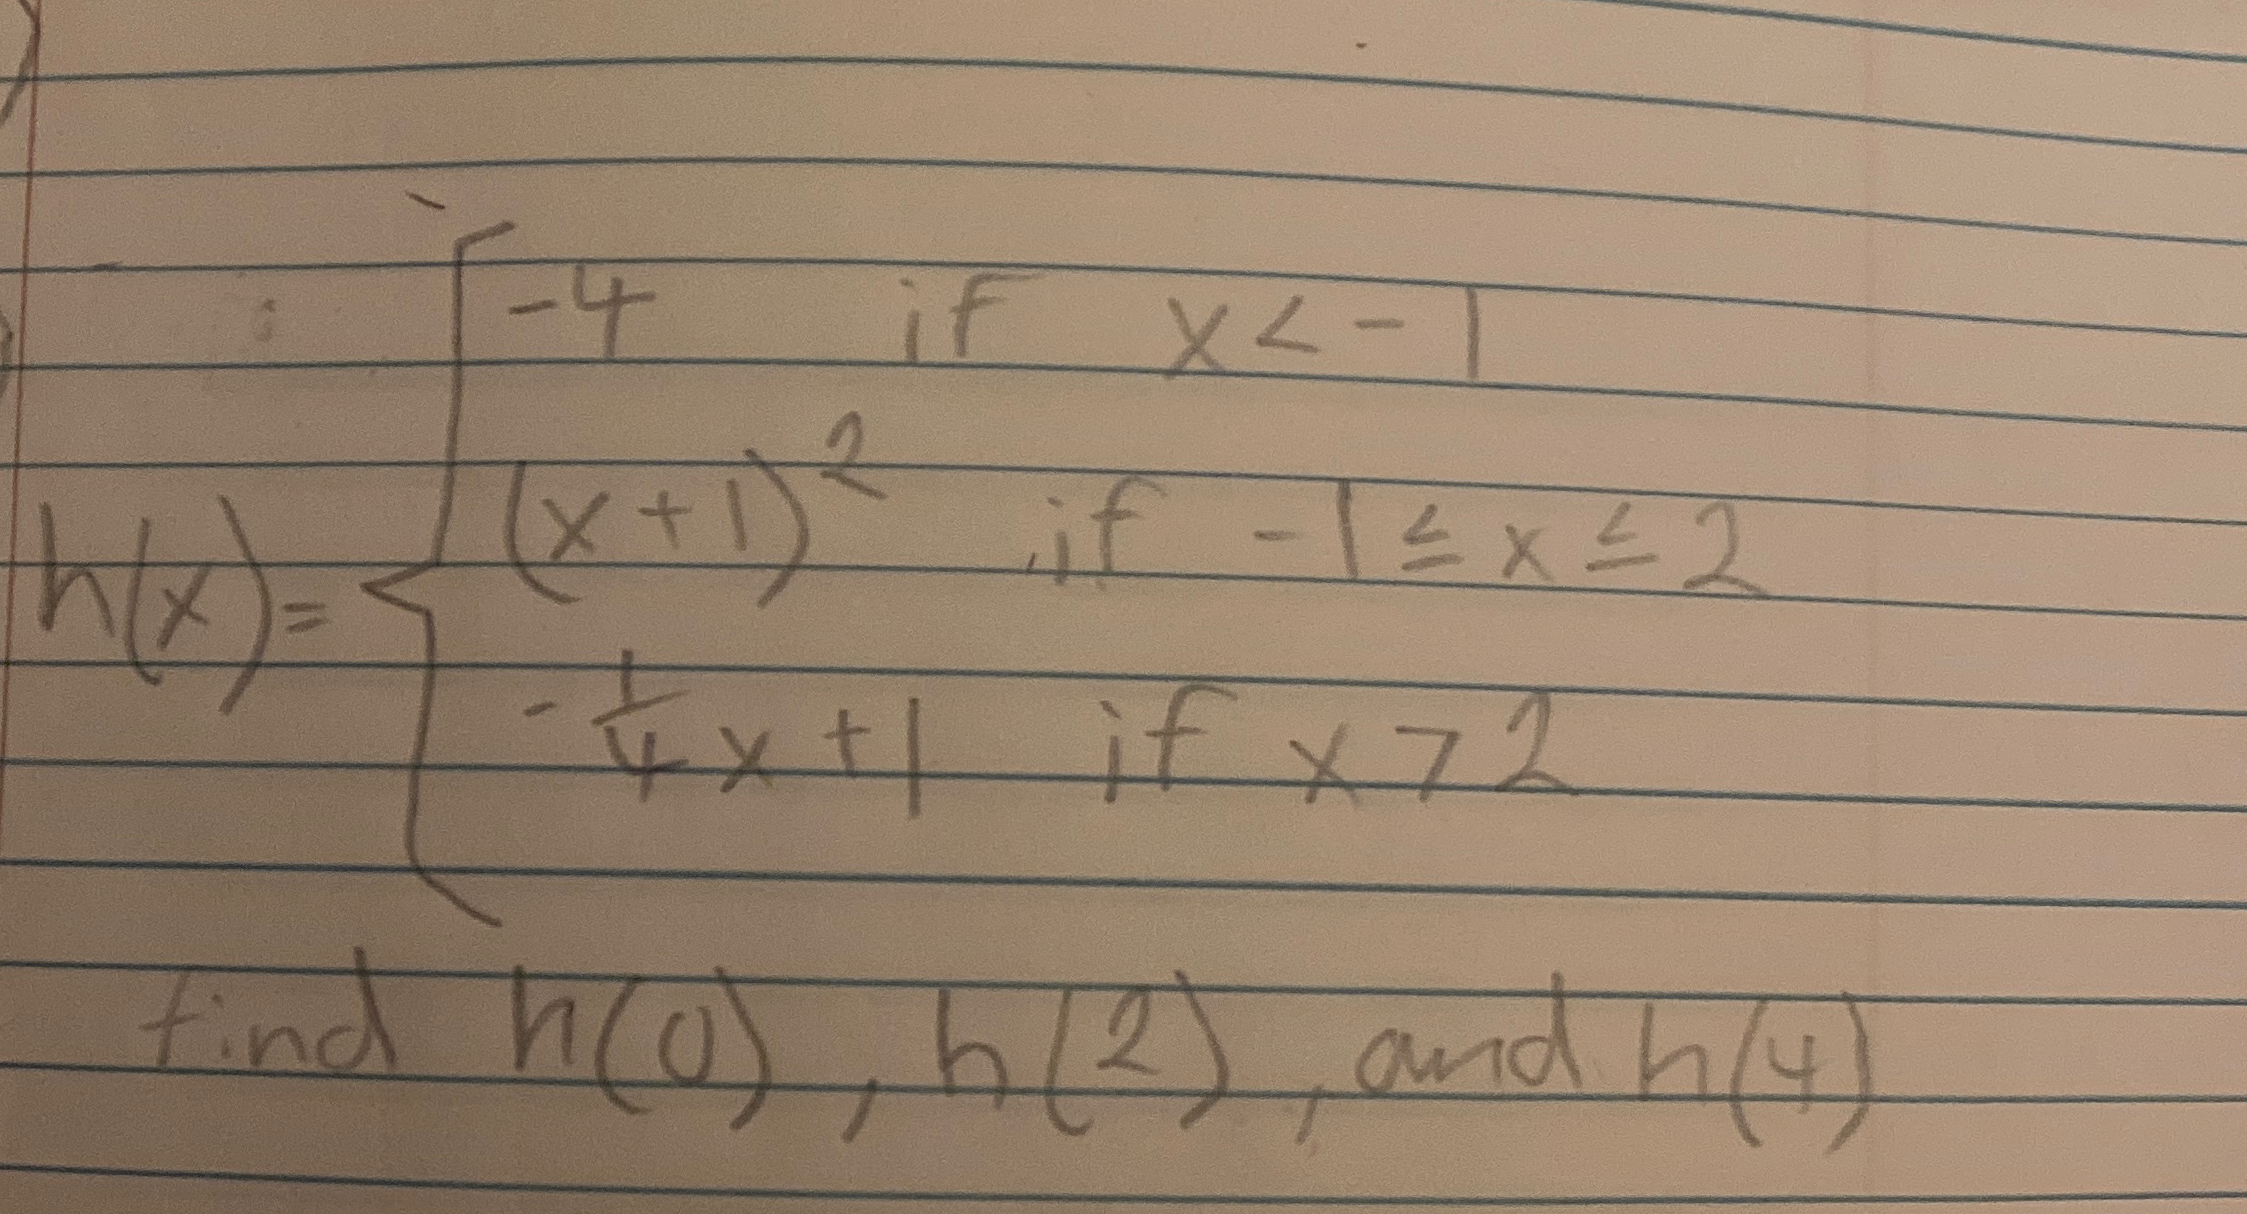 -4 if x < -1
(x + 1)² if -1 ≤ x ≤ 2
h(x) =
-1/4 x + 1 if x > 2
find h(0), h(2), and h(4)